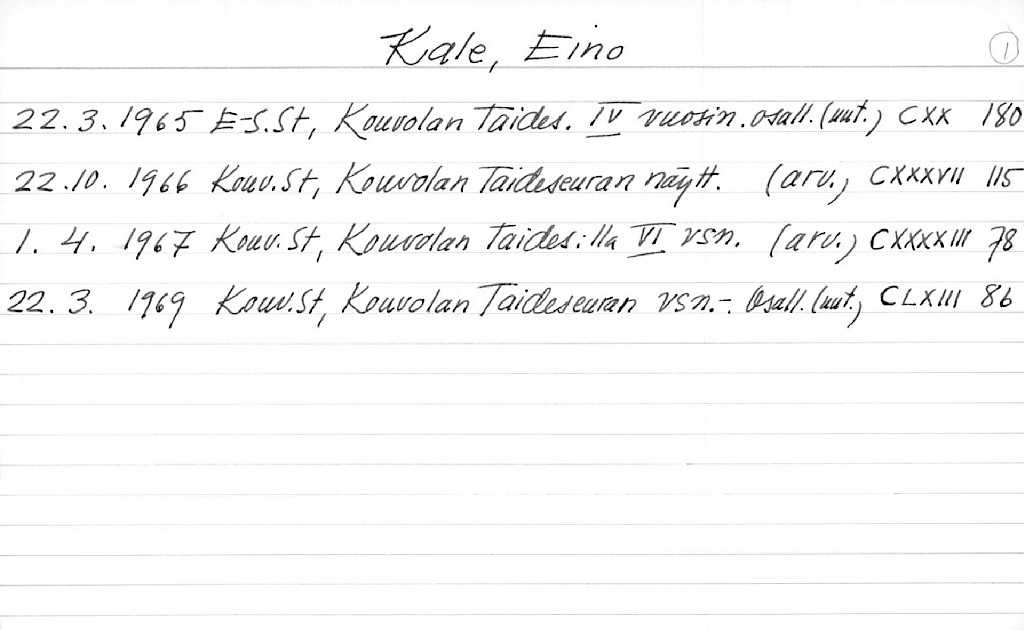 Kale, Eino 1
22.3.1965 E-S.St, Kouvolan Taides. IV vuosin. osall. (uut.) CXX 180
22.10.1966 Kouv.St, Kouvolan Taideseuran näytt. (arv.) CXXXVII 115
1.4.1967 Kouv.St, Kouvolan Taides:lla VI vsn. (arv.) CXXXXIII 78
22.3.1969 Kouv.St, Kouvolan Taideseuran vsn.-. Osall. (uut.) CLXIII 86